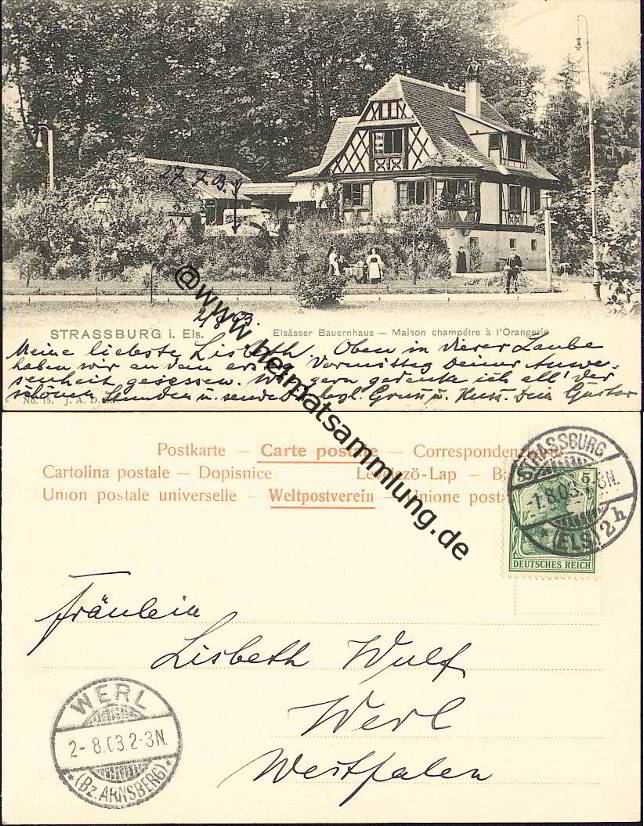 27.7.03.
STRASSBURG i. Els.
Elsässer Bauernhaus — Maison champêtre à l'Orangerie
Meine liebste Lisbeth. Oben in dieser Laube
haben wir an dem ersten Vormittag Deiner Anwe-
senheit gesessen. Wie gern gedenke ich all' der
schönen Stunden u. sende herzl. Gruss u. Kuss. Dein Gustav
No. 15. J. A. D.
@www.heimatsammlung.de
Postkarte – Carte postale – Correspondenz
Cartolina postale – Dopisnice Levelezö-Lap –
Union postale universelle – Weltpostverein – Unione posta
STRASSBURG
-1.8.03. N.
* (ELS) 2h
5
DEUTSCHES REICH
Fräulein
Lisbeth Wulf
Werl
Westfalen
WERL
2-8.03.2-3N.
*(Bz. ARNSBERG)*